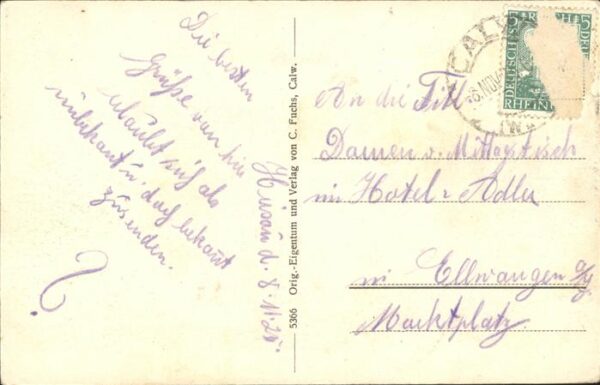 Die besten
Grüße von hier
erlaubt sich als
unbekannt u. doch bekannt
zusenden.
?
Hirsau d. 8.11.25
5366 Orig.-Eigentum und Verlag von C. Fuchs, Calw.
An die Titl
Damen v. Mittagstisch
im Hotel z Adler
in Ellwangen a/J.
Marktplatz
CALW
NOV
5
REICH
5
DEUTSCHES
RHEIN